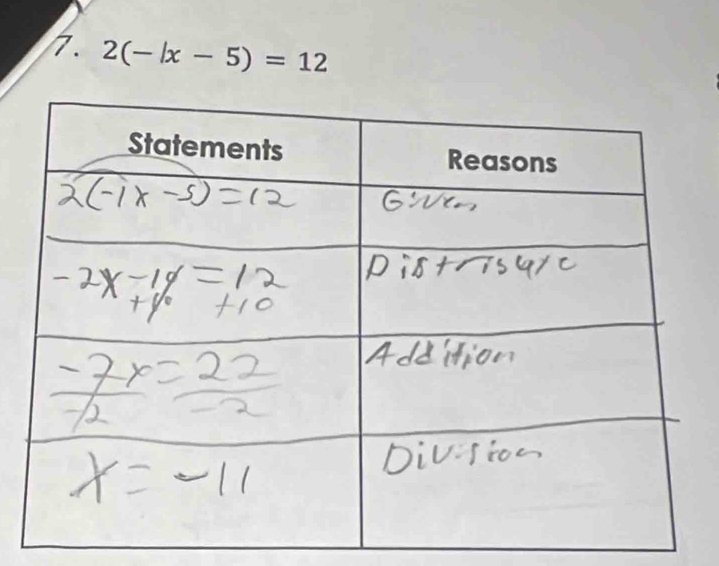 7. 2(-1x - 5) = 12
Statements Reasons
2(-1x -5) = 12 Given
-2x -10 = 12 Distribute
+10 +10
-2x = 22 Addition
-2 -2
x = -11 Division